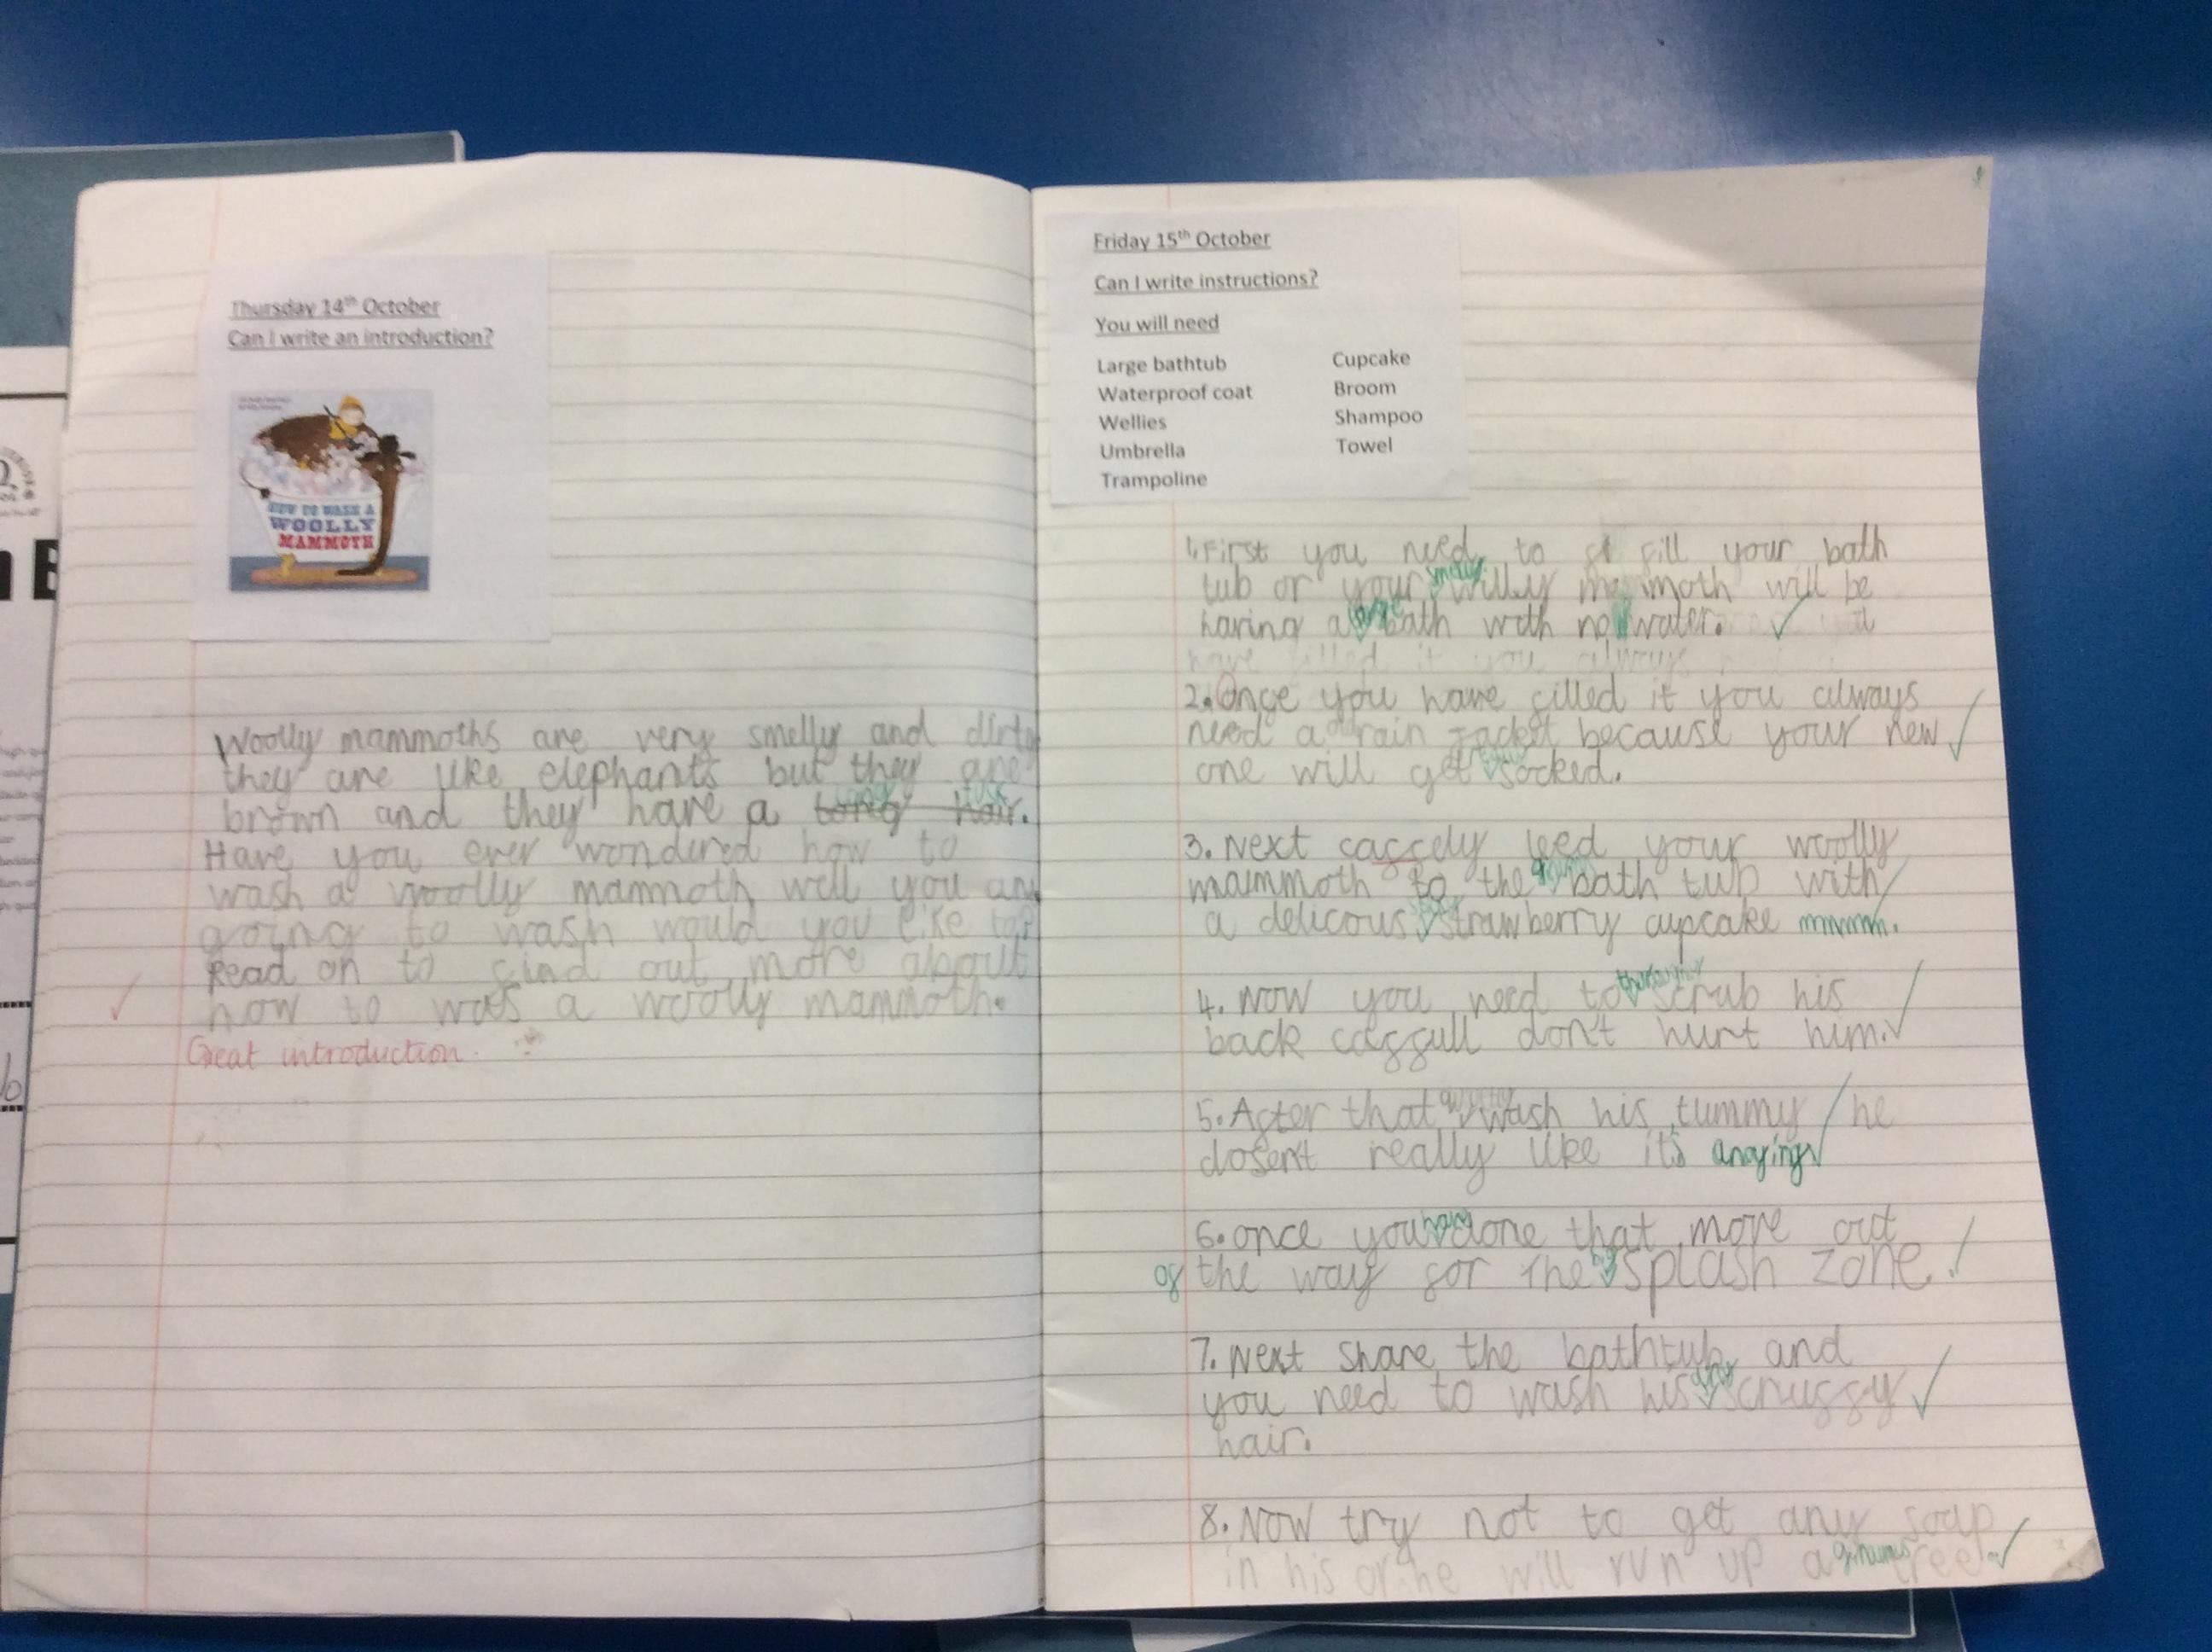 Thursday 14th October
Can I write an introduction?
HOW TO WASH A
WOOLLY
MAMMOTH
Woolly mammoths are very smelly and dirty
they are like elephants but they are
long tusk
brown and they have a long hair.
Have you ever wondered how to
wash a woolly mammoth well you are
going to wash would you like to?
Read on to find out more about
how to was a woolly mammoth.
Great introduction.
Friday 15th October
Can I write instructions?
You will need
Large bathtub
Waterproof coat
Wellies
Umbrella
Trampoline
Cupcake
Broom
Shampoo
Towel
1. First you need to fill your bath
smelly
tub or your willy mammoth will be
having a bath with no water.
have filled it you always
2. Once you have filled it you always
need a rain jacket because your new
one will get socked.
3. Next cassely leed your woolly
mammoth to the bath tub with
a delicous strawberry cupcake mmmm.
4. Now you need to scrub his
back caffull don't hurt him.
5. After that wash his tummy he
dosen't really like it's anoying
6. once you have done that move out
of the way for the big splash zone.
7. Next share the bathtub and
you need to wash his scruffy
hair.
8. Now try not to get any soap
in his or he will run up a tree.